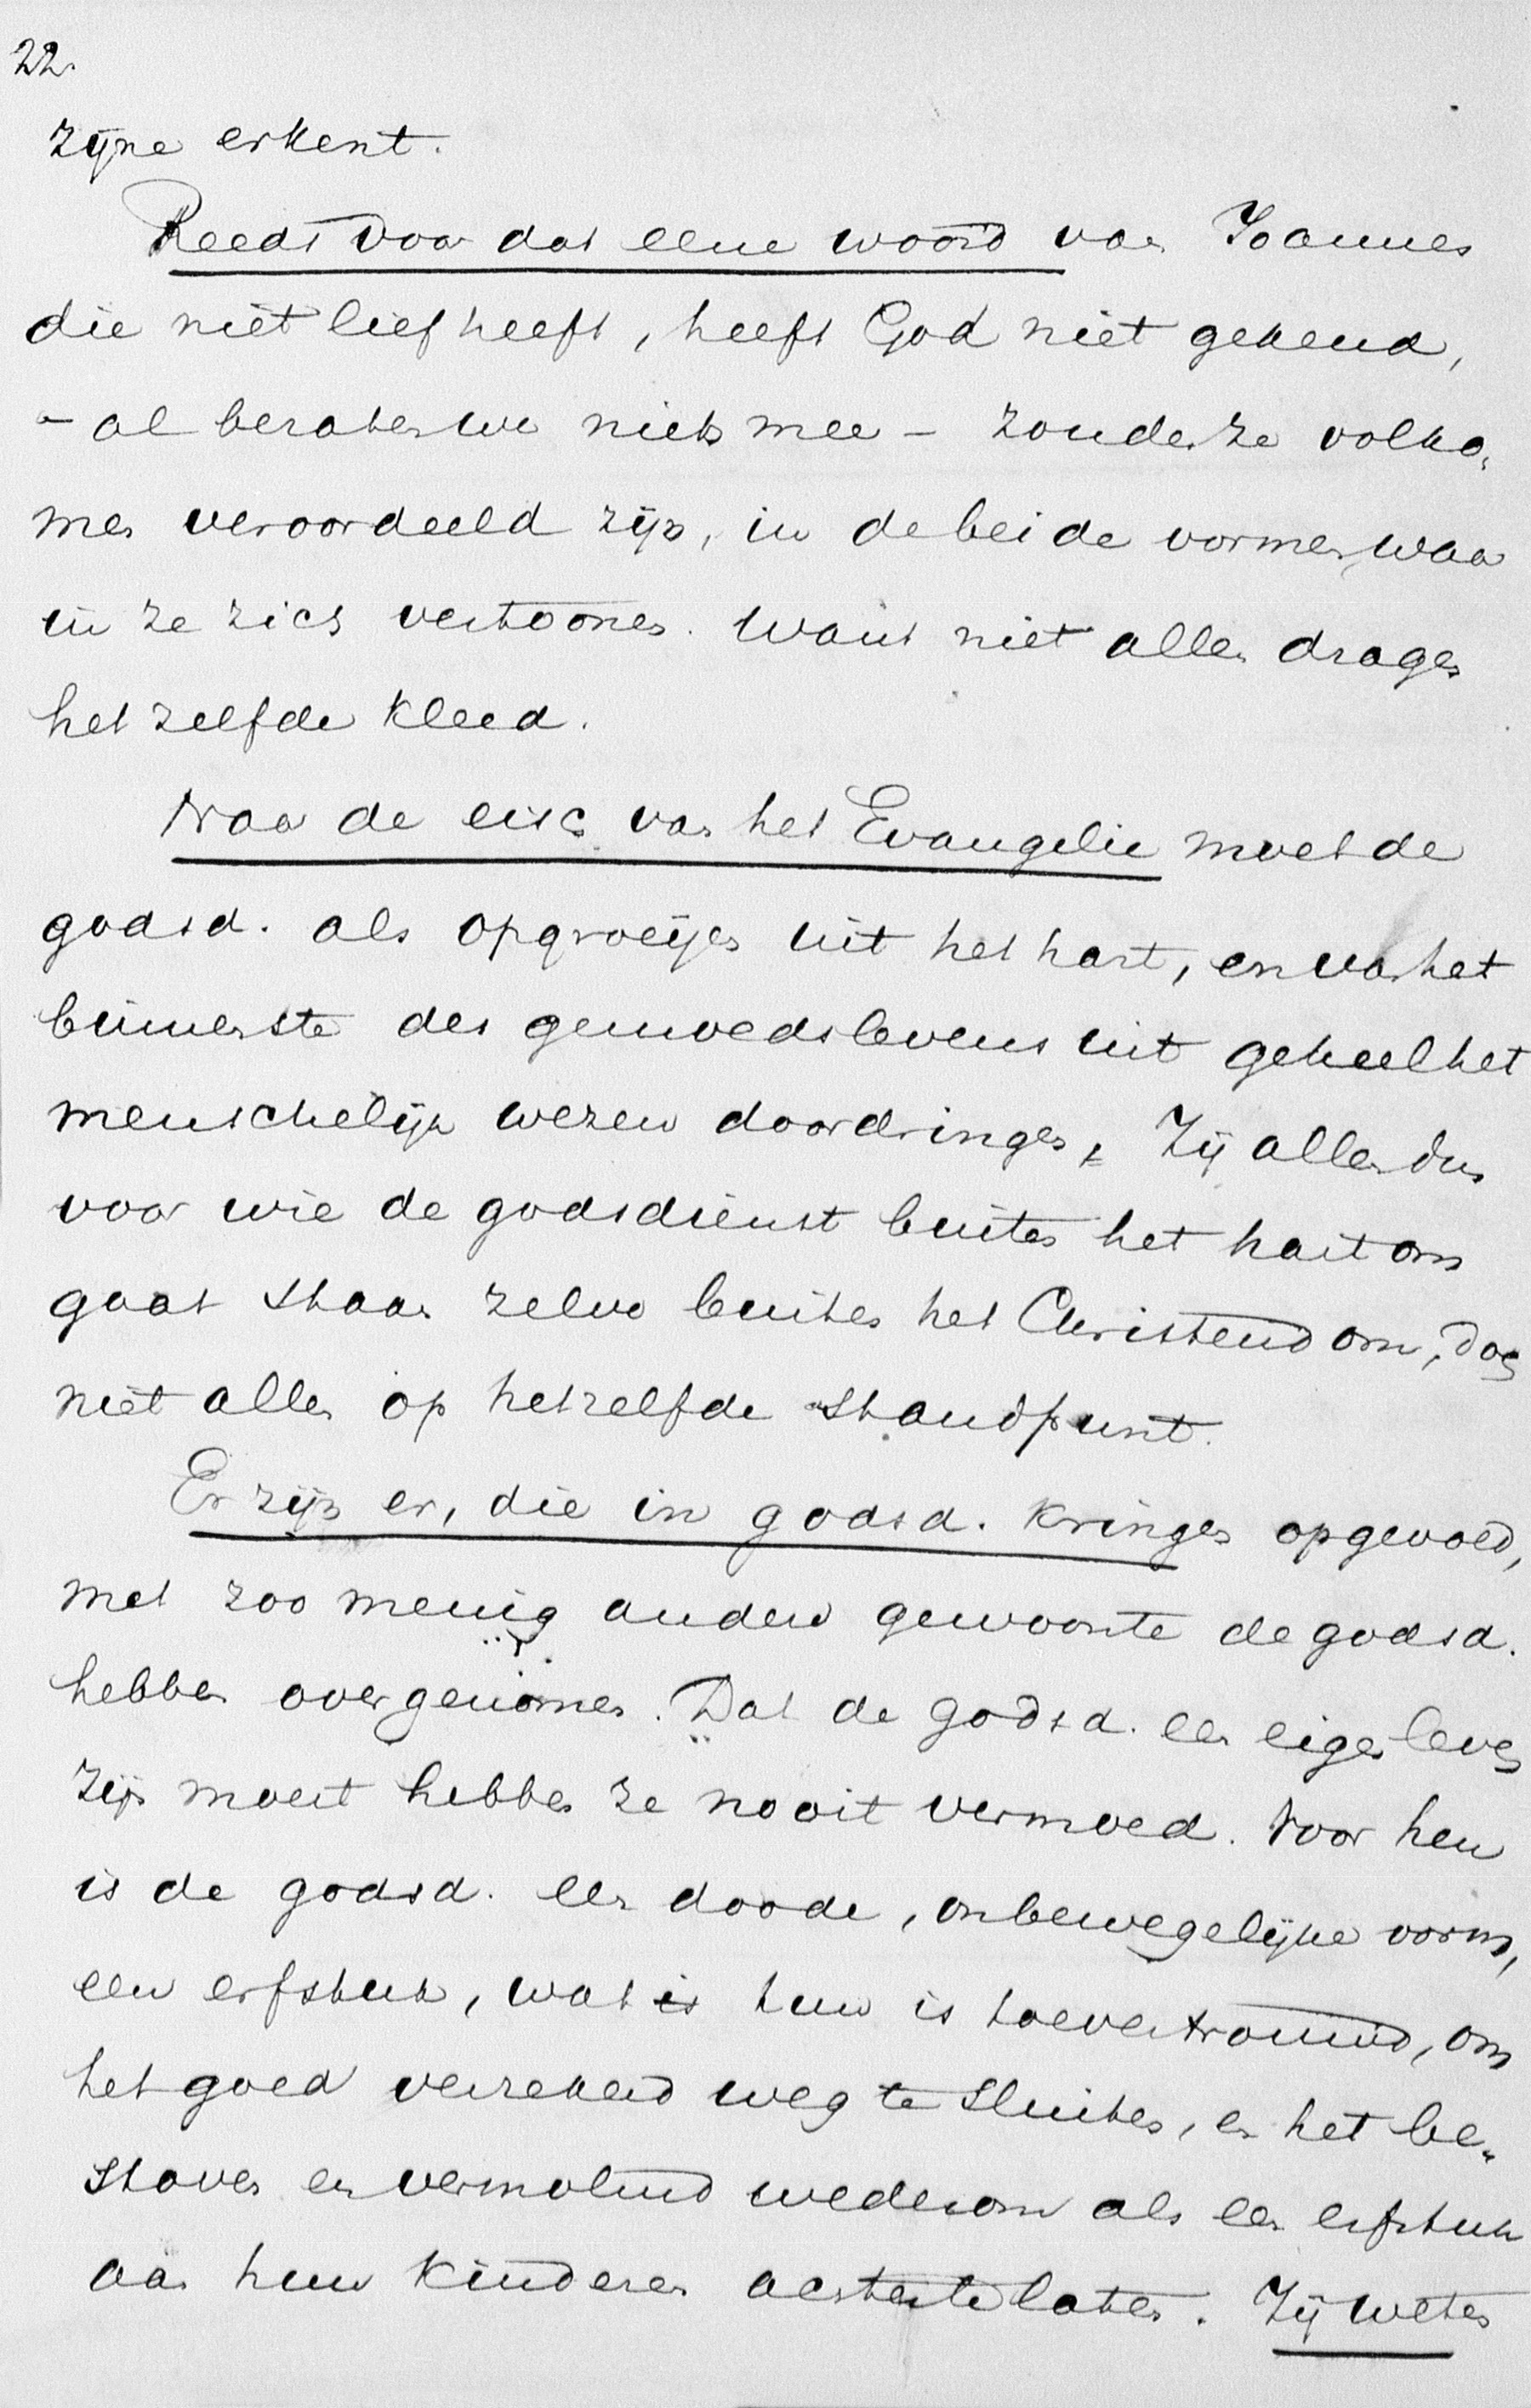 22.
zijne erkent.
Reeds door dat eene woord van Joannes
die niet lief heeft, heeft God niet gekend,
- al bezaten we niets meer - zouden ze volko-
men veroordeeld zijn, in de beide vormen, waar
in ze zich vertoonen. Want niet allen dragen
het zelfde kleed.
Naar de eisch van het Evangelie moet de
godsd. als opgroeijen uit het hart, en van het
binnenste des gemoedslevens uit geheel het
menschelijk wezen doordringen. Zij allen dus
voor wie de godsdienst buiten het hart om
gaat staan zelve buiten het Christendom, doch
niet allen op hetzelfde standpunt.
Er zijn er, die in godsd. kringen opgevoed,
met zoo menig andere gewoonte de godsd.
hebben overgenomen. Dat de godsd. een eigen leven
zijn moest hebben ze nooit vermoed. Voor hen
is de godsd. een doode, onbewegelijke vorm,
een erfstuk, wat is hun is toevertrouwd, om
het goed verzekerd weg te sluiten, en het be-
stoven en vermolmd wederom als een erfstuk
aan hun kinderen achterte laten. Zij weten